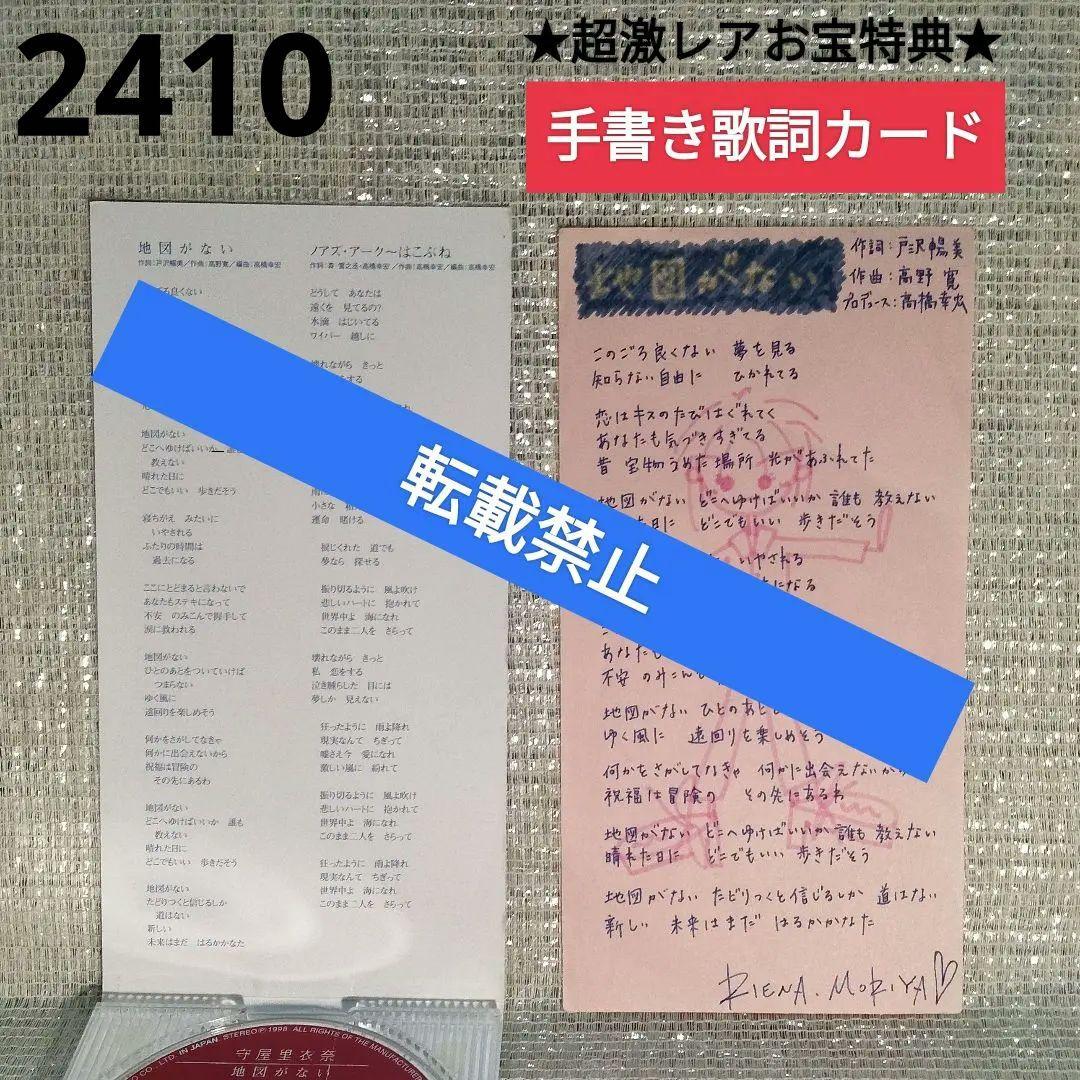 2410
★超激レアお宝特典★
手書き歌詞カード
転載禁止
地図がない
作詞：戸沢暢美／作曲：高野寛／編曲：高橋幸宏
良くない
地図がない
どこへゆけばいいか
教えない
晴れた日に
どこでもいい 歩きだそう
寝ちがえ みたいに
いやされる
ふたりの時間は
過去になる
ここにとどまると言わないで
あなたもステキになって
不安 のみこんで握手して
涙に救われる
地図がない
ひとのあとをついていけば
つまらない
ゆく風に
遠回りを楽しめそう
何かをさがしてなきゃ
何かに出会えないから
祝福は冒険の
その先にあるわ
地図がない
どこへゆけばいいか 誰も
教えない
晴れた日に
どこでもいい 歩きだそう
地図がない
たどりつくと信じるしか
道はない
新しい
未来はまだ はるかかなた
ノアズ・アーク〜はこぶね
作詞：森 雪之丞・高橋幸宏／作曲：高橋幸宏／編曲：高橋幸宏
どうして あなたは
遠くを 見てるの？
水滴 はじいてる
ワイパー 越しに
壊れながら きっと
をする
小さな
運命 賭ける
捩じくれた 道でも
夢なら 探せる
振り切るように 風よ吹け
悲しいハートに 抱かれて
世界中よ 海になれ
このまま二人を さらって
壊れながら きっと
私 恋をする
泣き腫らした 目には
夢しか 見えない
狂ったように 雨よ降れ
現実なんて ちぎって
嘘さえ今 愛になれ
激しい嵐に 紛れて
振り切るように 風よ吹け
悲しいハートに 抱かれて
世界中よ 海になれ
このまま二人を さらって
狂ったように 雨よ降れ
現実なんて ちぎって
世界中よ 海になれ
このまま二人を さらって
地図がない
作詞：戸沢暢美
作曲：高野 寛
プロデュース：高橋幸宏
このごろ良くない 夢を見る
知らない自由に ひかれてる
恋はキスのたびはぐれてく
あなたも気づきすぎてる
昔 宝物うめた場所 光があふれてた
地図がない どこへゆけばいいか 誰も 教えない
日に どこでもいい 歩きだそう
いやされる
になる
あなたも
不安 のみこんで
地図がない ひとのあと
ゆく風に 遠回りを楽しめそう
何かをさがしてなきゃ 何かに出会えないから
祝福は冒険の その先にあるわ
地図がない どこへゆけばいいか 誰も 教えない
晴れた日に どこでもいい 歩きだそう
地図がない たどりつくと信じるしか 道はない
新しい 未来はまだ はるかかなた
RIENA.MORIYA♡
CO.,LTD. IN JAPAN STEREO Ⓟ1998 ALL RIGHTS OF THE MANUFACTURER
守屋里衣奈
地図がない